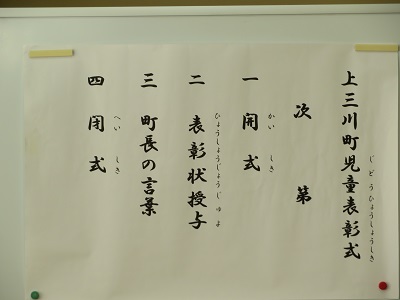 上三川町児童表彰式
じどうひょうしょうしき
次第
一 開式
かいしき
二 表彰状授与
ひょうしょうじょうじゅよ
三 町長の言葉
四 閉式
へいしき